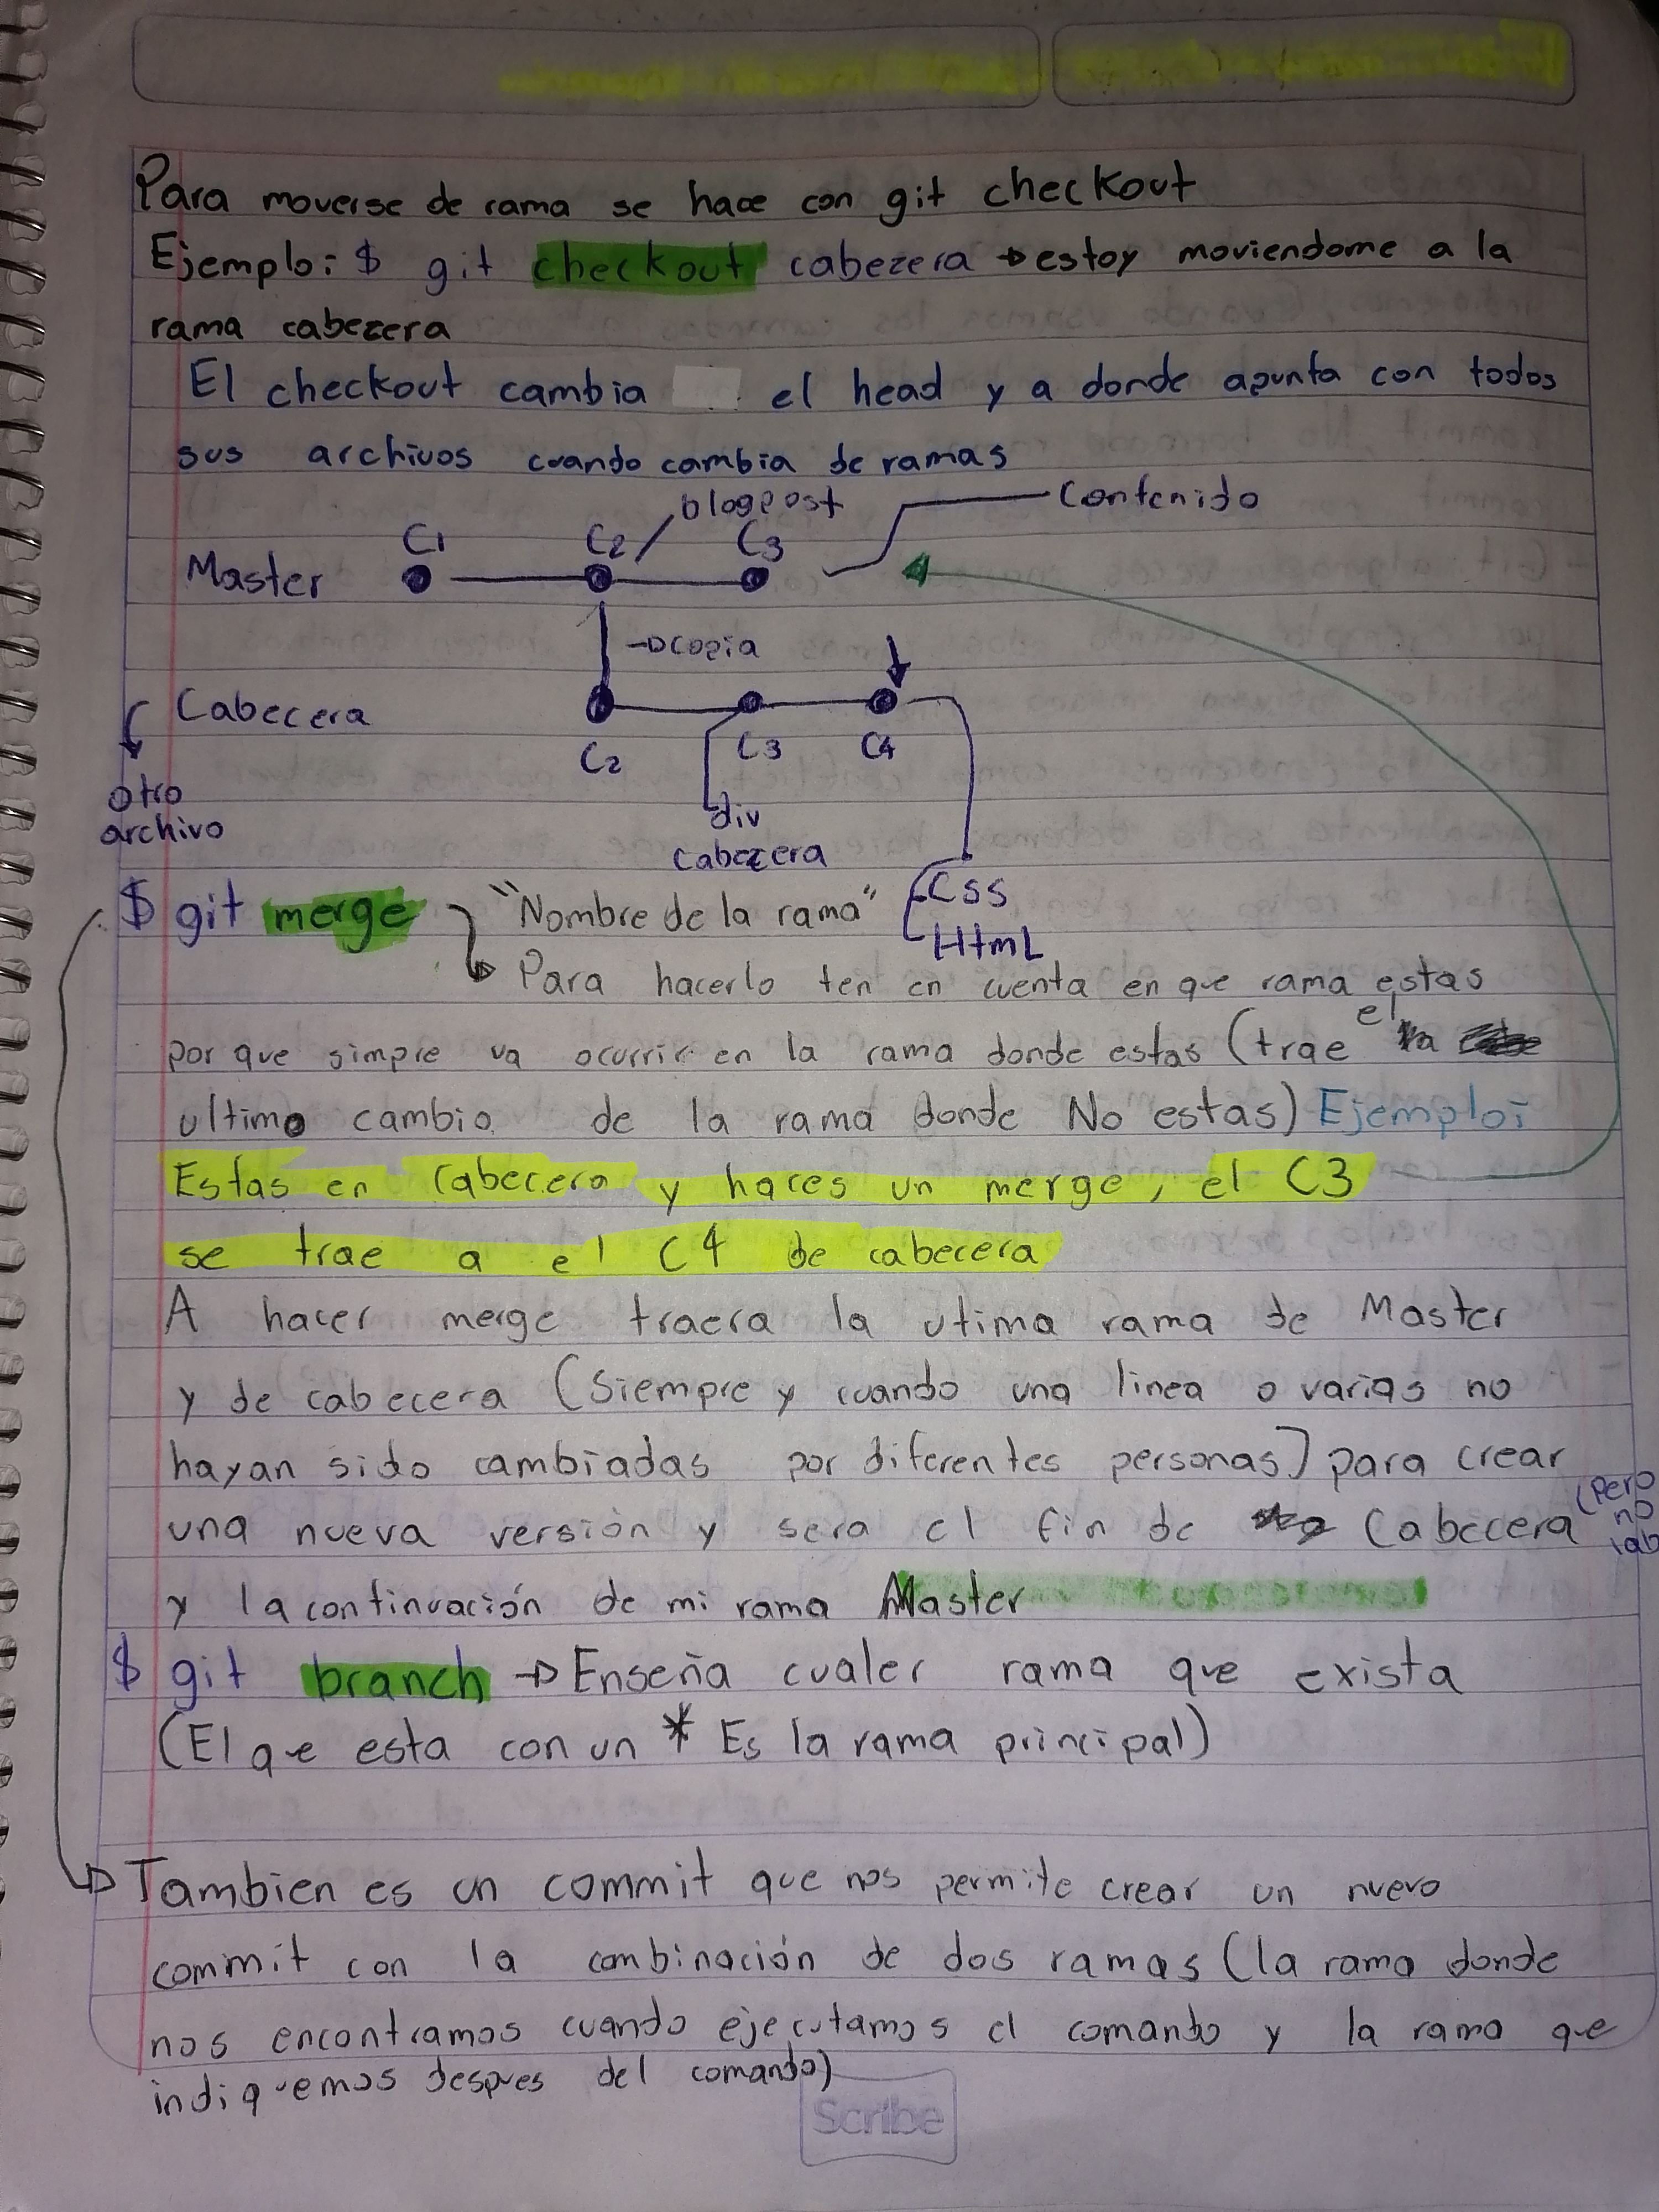 Para moverse de rama se hace con git checkout
Ejemplo: $ git checkout cabezera → estoy moviendome a la
rama cabezera
El checkout cambia el head y a donde apunta con todos
sus archivos cuando cambia de ramas
blogpost
Contenido
C1 C2 C3
Master
→ copia
Cabecera
C2 C3 C4
otro
archivo
div
cabezera
Css
HtmL
$ git merge "Nombre de la rama"
Para hacerlo ten en cuenta en que rama estas
por que simpre va ocurrir en la rama donde estas (trae el
ultimo cambio de la rama donde No estas) Ejemplo:
Estas en cabecera y haces un merge, el C3
se trae a el C4 de cabecera
A hacer merge traera la utima rama de Master
y de cabecera (Siempre y cuando una linea o varias no
hayan sido cambiadas por diferentes personas) para crear
una nueva versión y sera el fin de Cabecera (Pero
no
y la continuación de mi rama Master
$ git branch → Enseña cualer rama que exista
(El que esta con un * Es la rama principal)
→ Tambien es un commit que nos permite crear un nuevo
commit con la combinación de dos ramas (la rama donde
nos encontramos cuando ejecutamos el comando y la rama que
indiquemos despues del comando)
Scribe